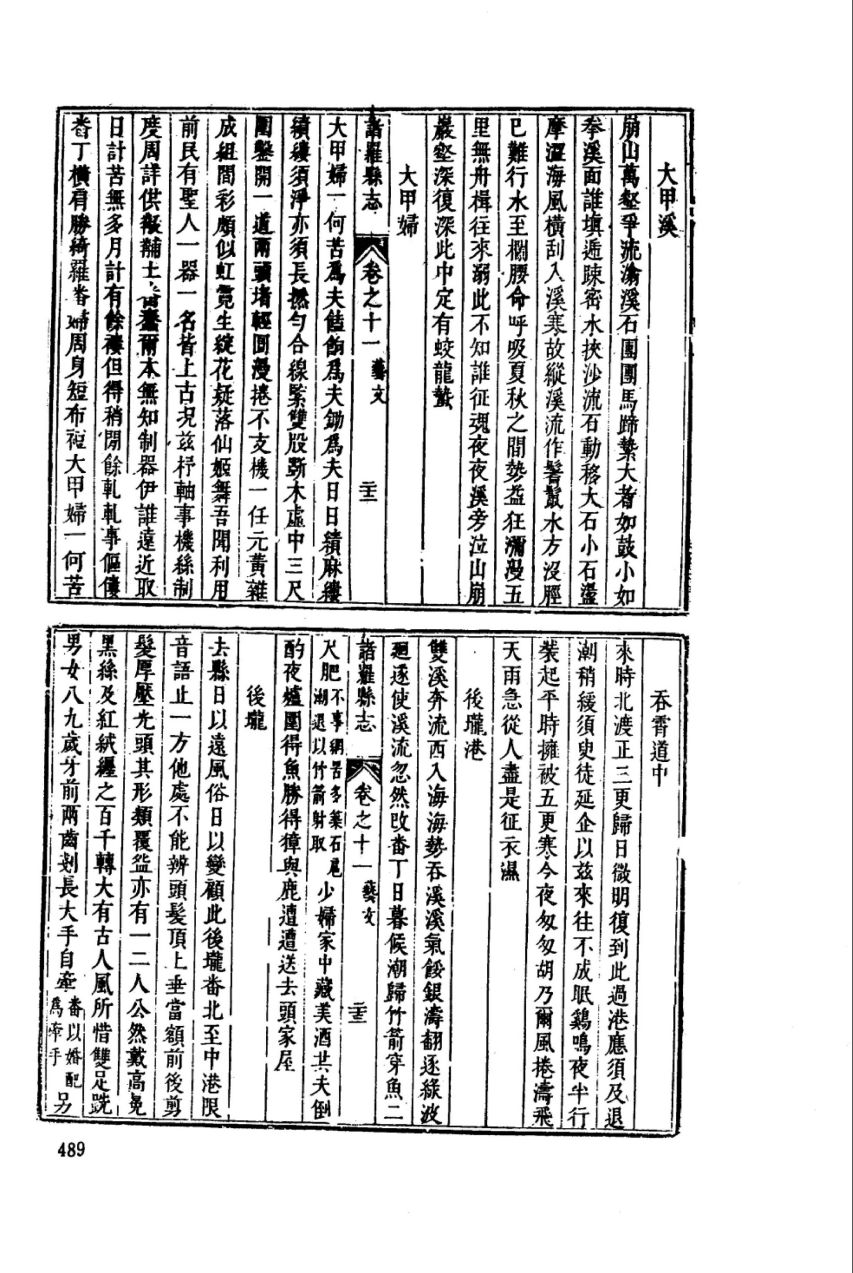 大甲溪
崩山萬壑爭流潝溪石團團馬蹄縶大者如鼓小如
拳溪面誰填遞踈密水挾沙流石動移大石小石盪
摩澀海風橫刮入溪寒故縱溪流作鬐鬣水方沒脛
已難行水至攔腰命呼吸夏秋之間勢益狂瀰漫五
里無舟楫往來溺此不知誰征魂夜夜溪旁泣山崩
巖壑深復深此中定有蛟龍蟄
大甲婦
諸羅縣志 卷之十一 藝文 二十二
大甲婦一何苦爲夫饁餉爲夫鋤爲夫日日績麻縷
績縷須淨亦須長撚勻合線緊雙股斲木虛中三尺
圍鑿開一道兩頭堵輕圓漫捲不支機一任元黃雜
成組間彩頗似虹霓生綻花疑落仙姬舞吾聞利用
前民有聖人一器一名皆上古況茲杼軸事機絲制
度周詳供黻黼土番蠢爾本無知制器伊誰遠近取
日計苦無多月計有餘褸但得稍閒餘軋軋事傴僂
番丁橫肩勝綺羅番婦周身短布裋大甲婦一何苦
吞霄道中
來時北渡正三更歸日微明復到此過港應須及退
潮稍緩須臾徒延企以茲來往不成眠鷄鳴夜半行
裝起平時擁被五更寒今夜匆匆胡乃爾風捲濤飛
天雨急從人盡是征衣濕
後壠港
雙溪奔流西入海海勢吞溪溪氣餒銀濤翻逐綠波
廻遂使溪流忽然改番丁日暮候潮歸竹箭穿魚二
諸羅縣志 卷之十一 藝文 二十三
尺肥不事網罟多藥石扈潮退以竹箭射取少婦家中藏美酒共夫倒
酌夜爐圍得魚勝得獐與鹿遭遭送去頭家屋
後壠
去縣日以遠風俗日以變顧此後壠番北至中港限
音語止一方他處不能辨頭髮頂上垂當額前後剪
髮厚壓光頭其形類覆盌亦有一二人公然戴高冕
黑絲及紅絨纏之百千轉大有古人風所惜雙足跣
男女八九歲牙前兩齒剗長大手自牽番以婚配爲牽手另
489